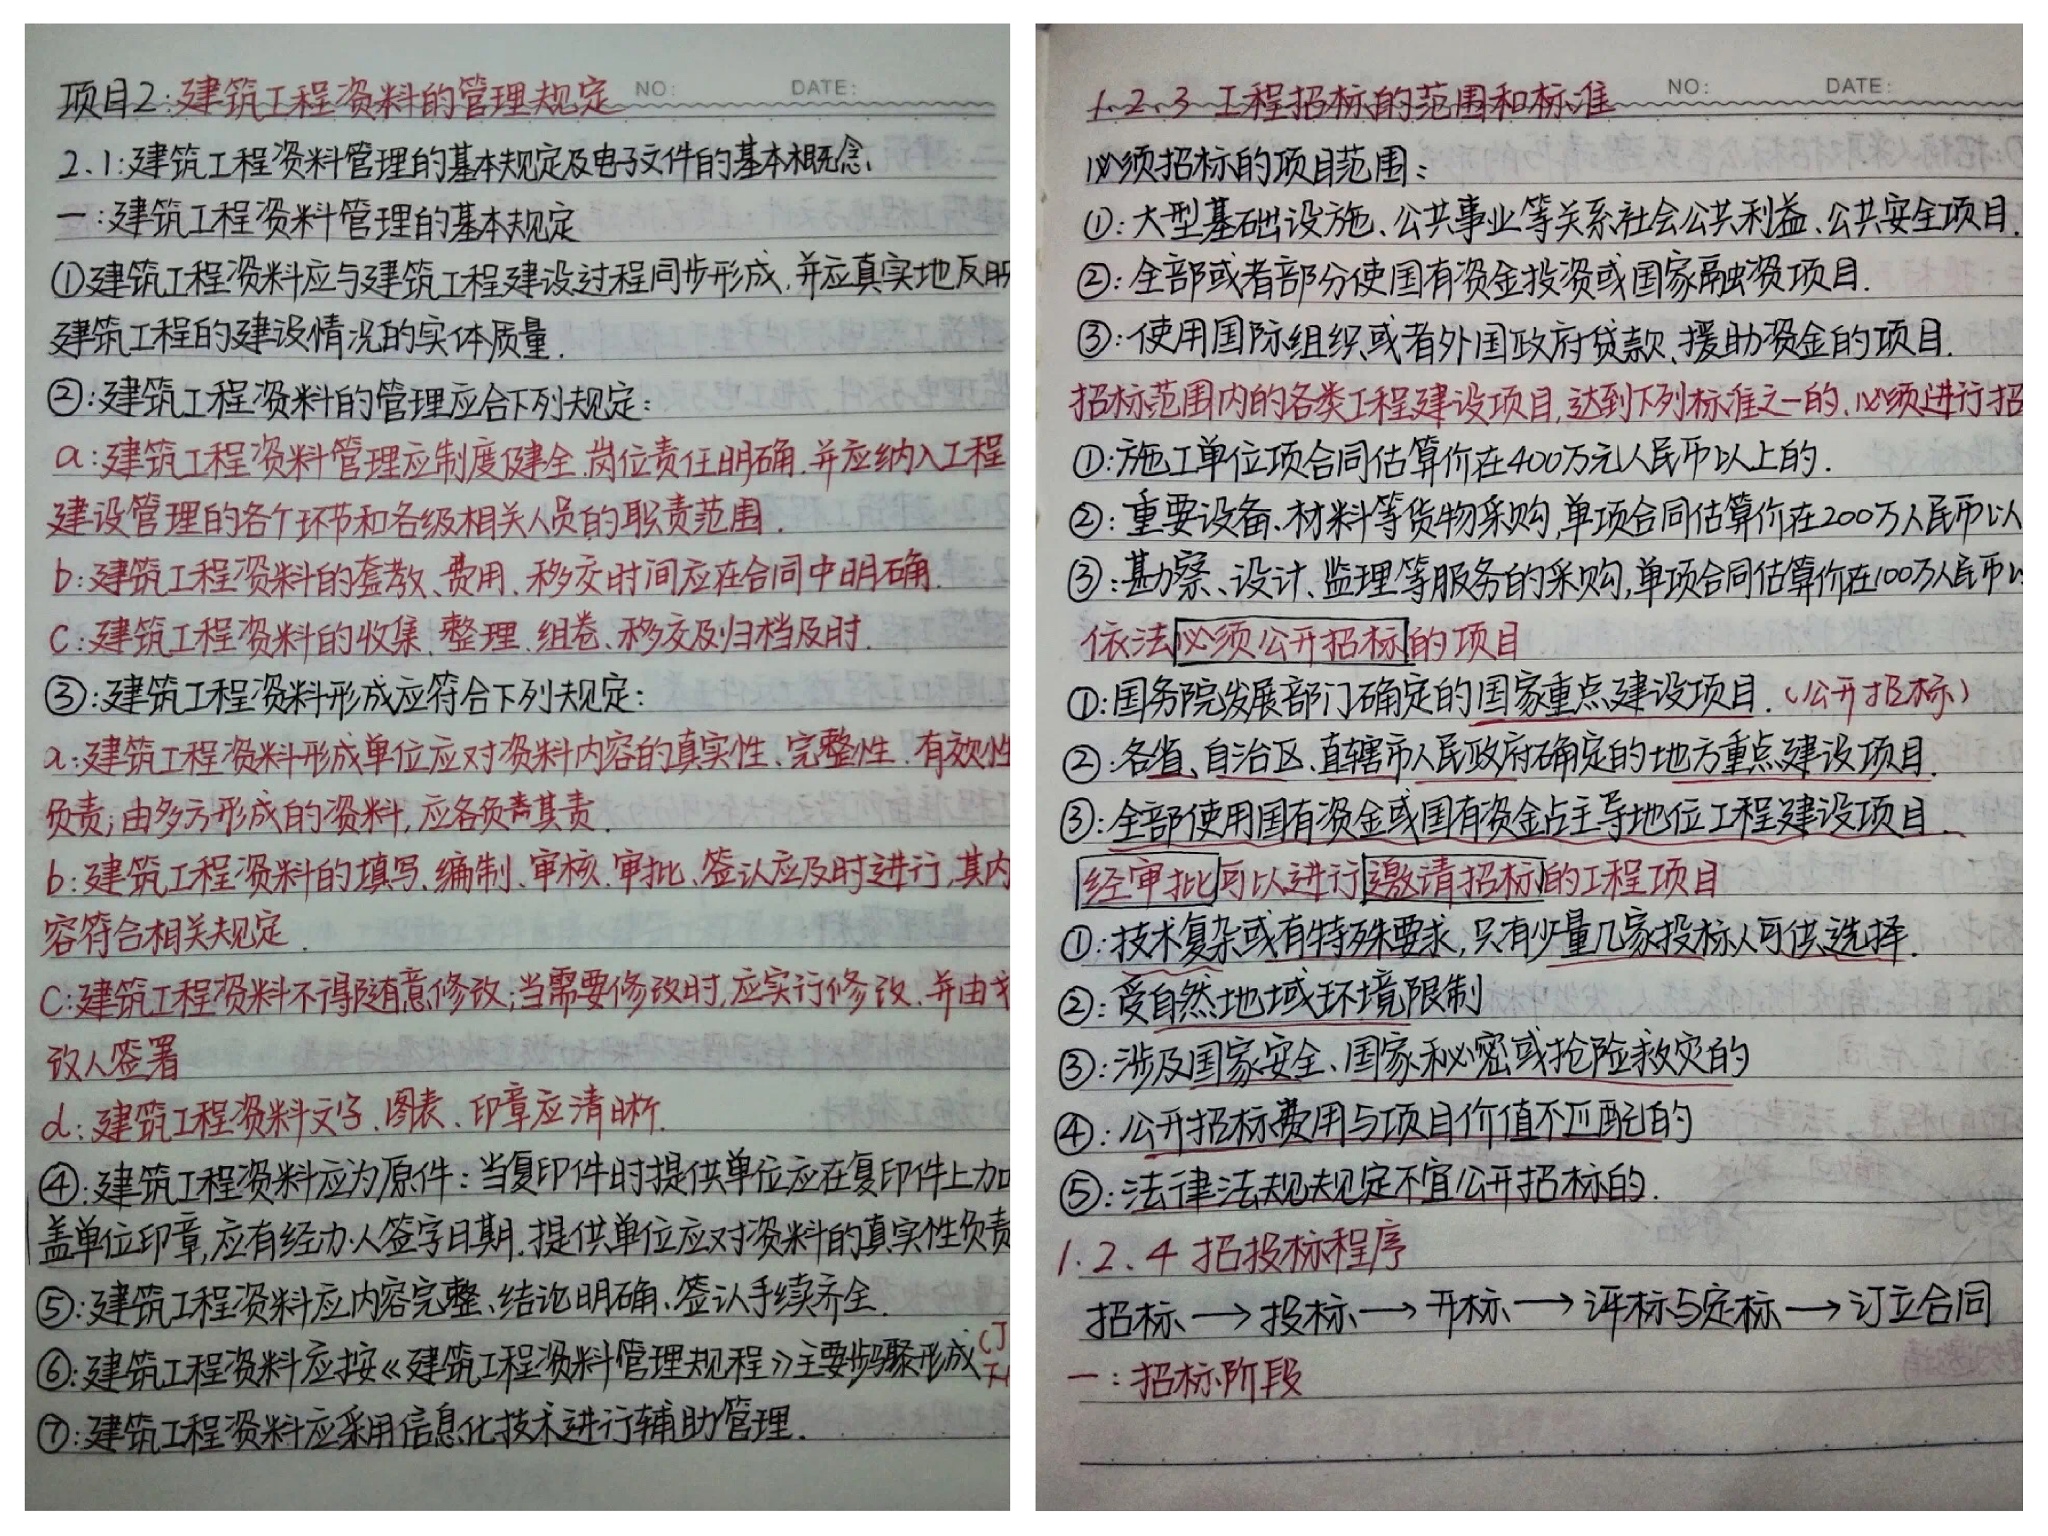 项目2:建筑工程资料的管理规定 NO: DATE:
2.1:建筑工程资料管理的基本规定及电子文件的基本概念.
一:建筑工程资料管理的基本规定
①建筑工程资料应与建筑工程建设过程同步形成,并应真实地反映
建筑工程的建设情况的实体质量.
②:建筑工程资料的管理应合下列规定:
a:建筑工程资料管理应制度健全.岗位责任明确.并应纳入工程
建设管理的各个环节和各级相关人员的职责范围.
b:建筑工程资料的套数、费用、移交时间应在合同中明确.
C:建筑工程资料的收集、整理、组卷、移交及归档及时.
③:建筑工程资料形成应符合下列规定:
a:建筑工程资料形成单位应对资料内容的真实性、完整性、有效性
负责;由多方形成的资料,应各负其责.
b:建筑工程资料的填写、编制、审核、审批、签认应及时进行,其内
容符合相关规定.
C:建筑工程资料不得随意修改;当需要修改时,应实行修改.并由
改人签署
d:建筑工程资料文字、图表、印章应清晰.
④:建筑工程资料应为原件:当复印件时提供单位应在复印件上加
盖单位印章,应有经办人签字日期.提供单位应对资料的真实性负责
⑤:建筑工程资料应内容完整、结论明确、签认手续齐全.
⑥:建筑工程资料应按《建筑工程资料管理规程》主要步骤形成(J
⑦:建筑工程资料应采用信息化技术进行辅助管理.
1.2.3 工程招标的范围和标准 NO: DATE:
必须招标的项目范围:
①:大型基础设施、公共事业等关系社会公共利益、公共安全项目.
②:全部或者部分使国有资金投资或国家融资项目.
③:使用国际组织或者外国政府贷款、援助资金的项目.
招标范围内的各类工程建设项目,达到下列标准之一的,必须进行招
①:施工单位项合同估算价在400万元人民币以上的.
②:重要设备、材料等货物采购,单项合同估算价在200万人民币以
③:勘察、设计、监理等服务的采购,单项合同估算价在100万人民币以
依法必须公开招标的项目
①:国务院发展部门确定的国家重点建设项目.(公开招标)
②:各省、自治区、直辖市人民政府确定的地方重点建设项目.
③:全部使用国有资金或国有资金占主导地位工程建设项目.
经审批可以进行邀请招标的工程项目
①:技术复杂或有特殊要求,只有少量几家投标人可供选择.
②:受自然地域环境限制
③:涉及国家安全、国家秘密或抢险救灾的
④:公开招标费用与项目价值不匹配的
⑤:法律法规规定不宜公开招标的.
1.2.4 招投标程序
招标→投标→开标→评标与定标→订立合同
一:招标阶段